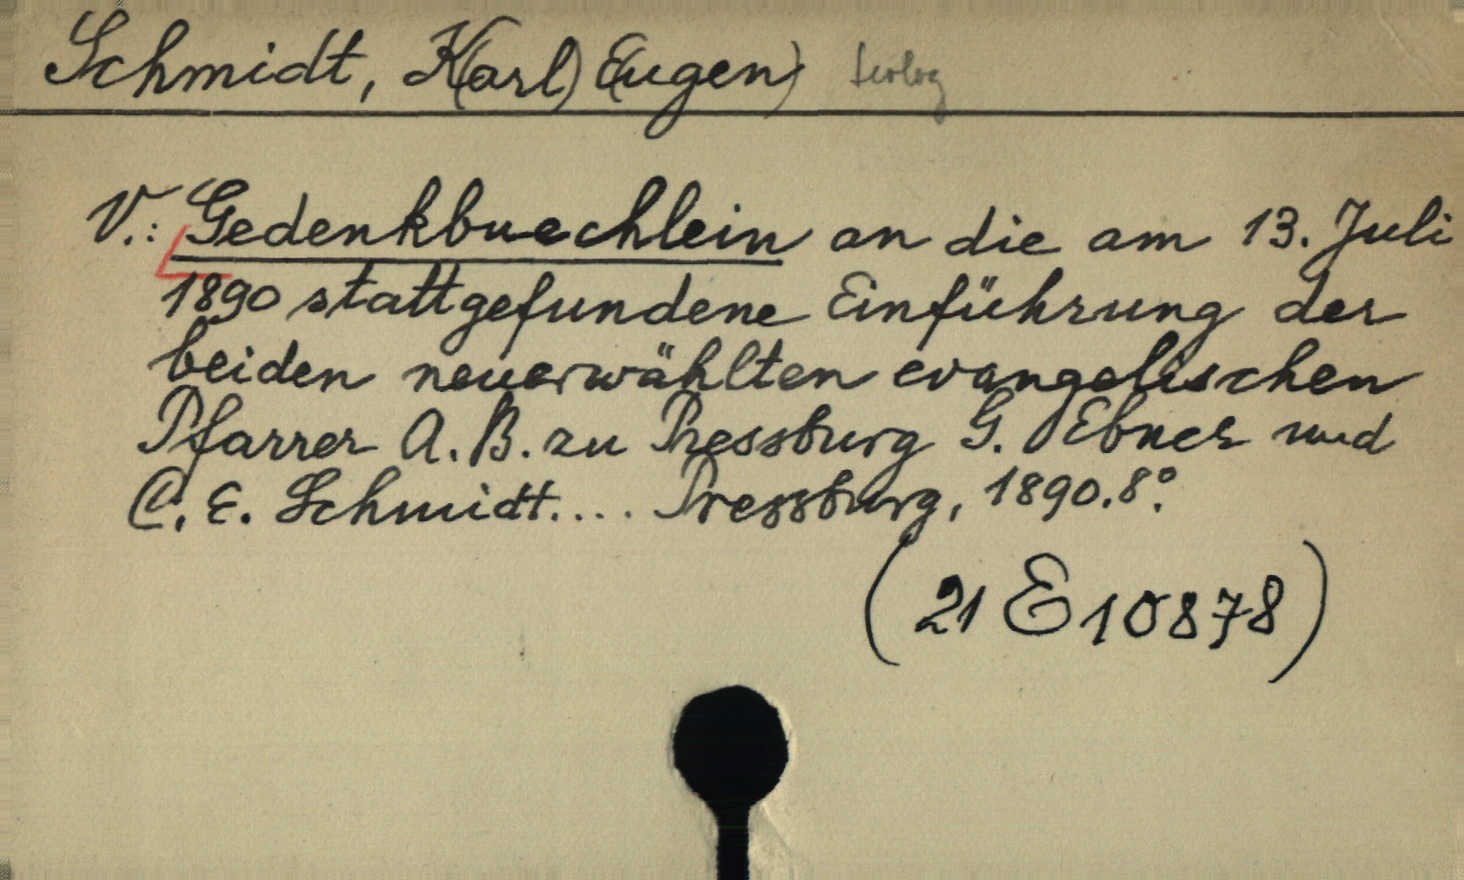 Schmidt, K(arl) E(ugen) teolog
V.: Gedenkbuechlein an die am 13. Juli
1890 stattgefundene Einführung der
beiden neuerwählten evangelischen
Pfarrer A. B. zu Pressburg G. Ebner und
C. E. Schmidt.... Pressburg, 1890. 8°.
(21 E 10878)